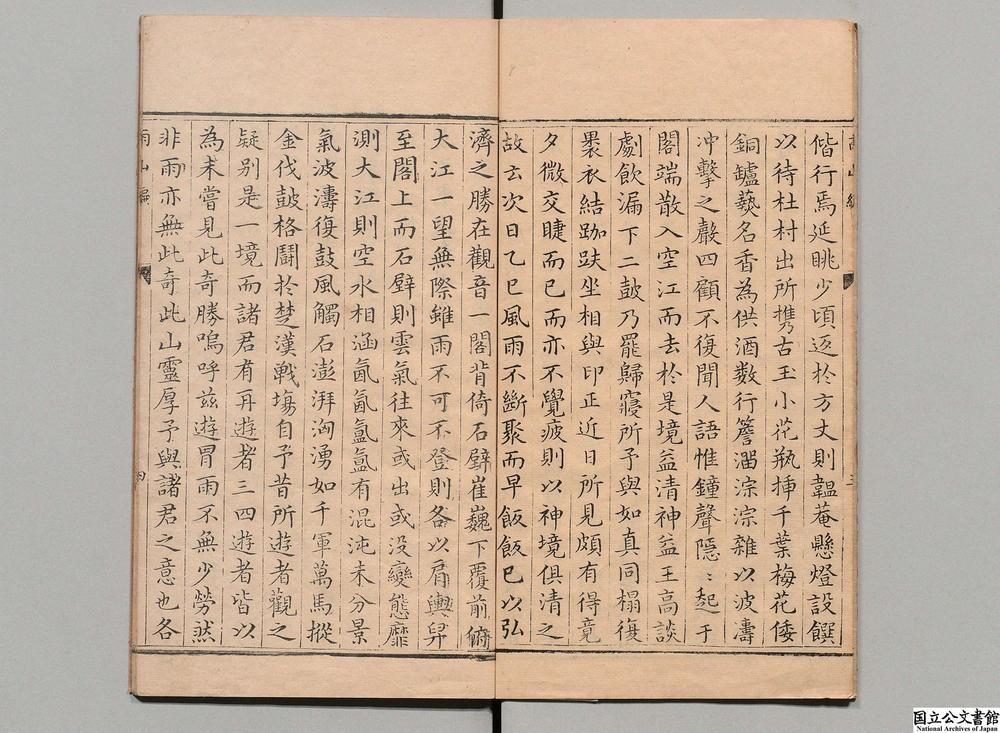 偕行焉延眺少頃返於方丈則韞菴懸燈設饌
以待杜村出所携古玉小花瓶揷千葉梅花倭
銅鑪爇名香為供酒数行簷溜淙淙雜以波濤
冲擊之聲四顧不復聞人語惟鐘聲隱〻起于
閣端散入空江而去於是境益清神益王高談
劇飲漏下二鼓乃罷歸寢所予與如真同榻復
褁衣結跏趺坐相與印正近日所見頗有得竟
夕微交睫而已而亦不覺疲則以神境俱清之
故云次日乙巳風雨不斷聚而早飯飯已以弘
濟之勝在觀音一閣背倚石壁崔巍下覆前俯
大江一望無際雖雨不可不登則各以肩輿舁
至閣上而石壁則雲氣往來或出或没變態靡
測大江則空水相涵氤氳氳氳有混沌未分景
氣波濤復鼓風觸石澎湃洶湧如千軍萬馬摐
金伐鼓格鬪於楚漢戰塲自予昔所遊者觀之
疑别是一境而諸君有再遊者三四遊者皆以
為未嘗見此奇勝嗚呼兹遊冒雨不無少勞然
非雨亦無此奇此山靈厚予與諸君之意也各
四
国立公文書館
National Archives of Japan